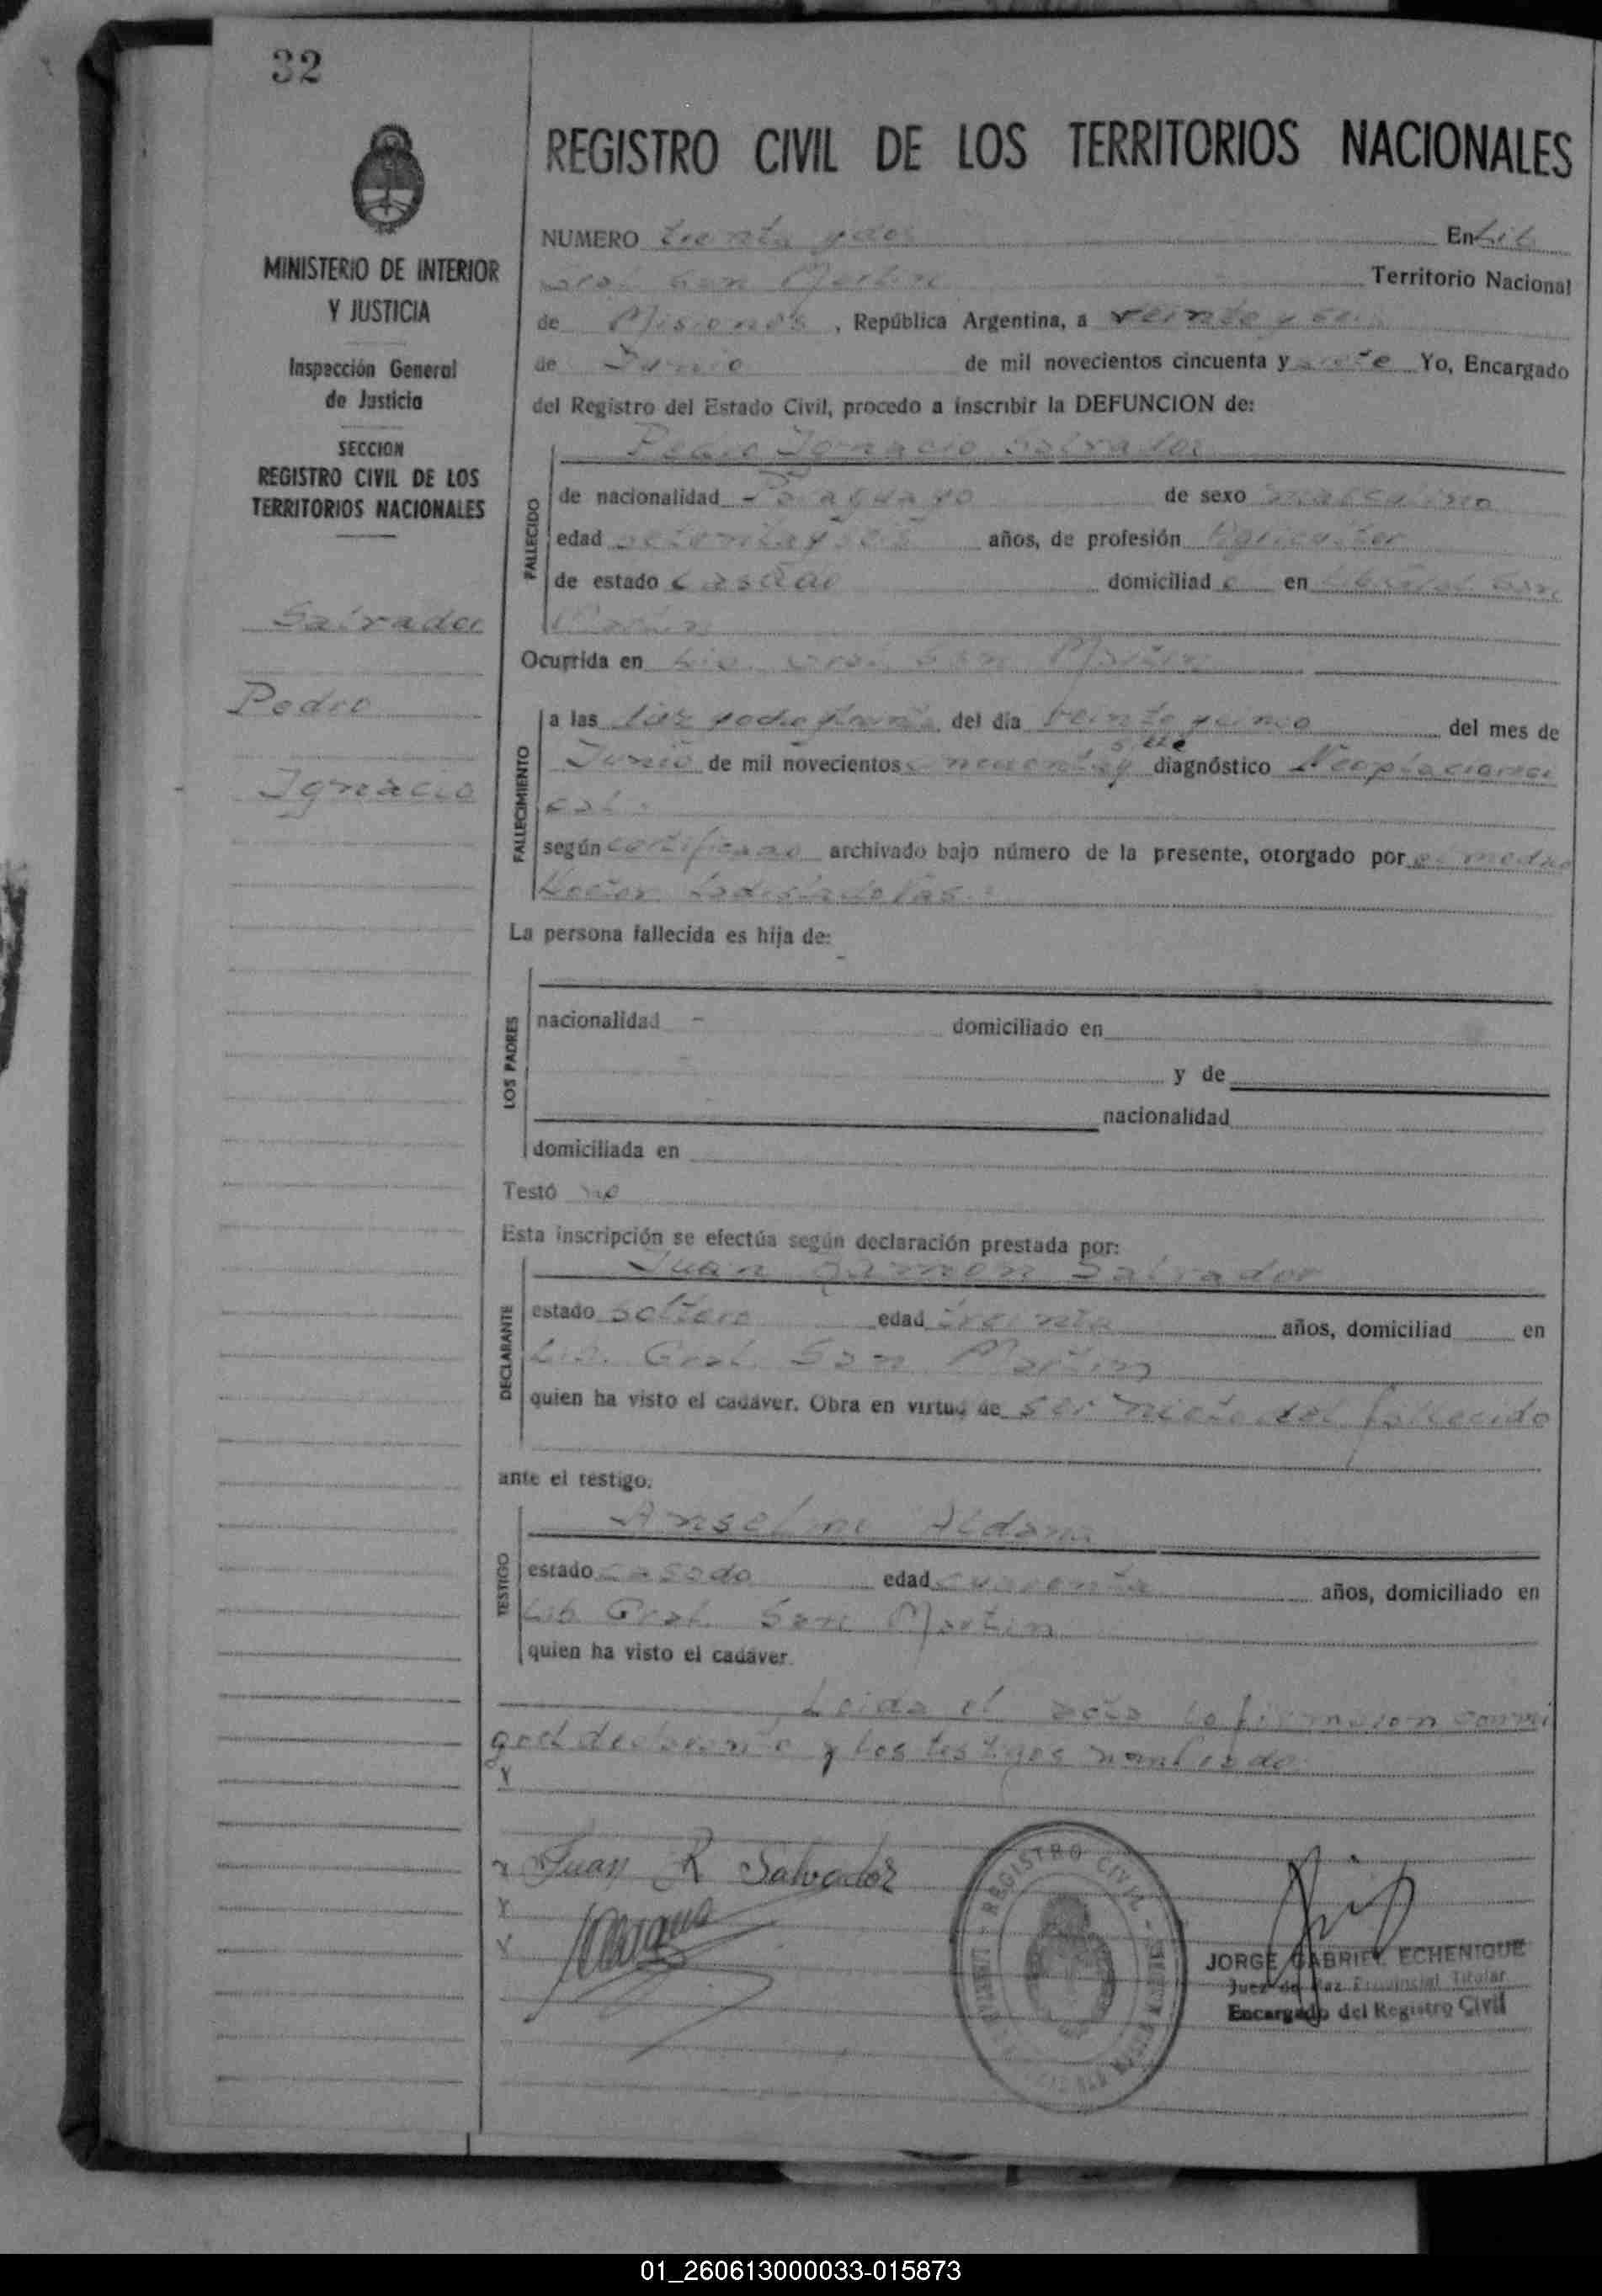 32
REGISTRO CIVIL DE LOS TERRITORIOS NACIONALES
MINISTERIO DE INTERIOR
Y JUSTICIA
Inspección General
de Justicia
SECCION
REGISTRO CIVIL DE LOS
TERRITORIOS NACIONALES
Salvador
Pedro
Ignacio
NUMERO treinta y dos En Lib
Gral. San Martin Territorio Nacional
de Misiones, República Argentina, a veinte y seis
de Junio de mil novecientos cincuenta y siete Yo, Encargado
del Registro del Estado Civil, procedo a inscribir la DEFUNCION de:
Pedro Ignacio Salvador
FALLECIDO
de nacionalidad Paraguayo de sexo masculino
edad setenta y seis años, de profesión Agricultor
de estado casado domiciliado en Lib. Gral. San
Martin
Ocurrida en Lib. Gral. San Martin
FALLECIMIENTO
a las diez del día veinte y cinco del mes de
siete
Junio de mil novecientos cincuenta y diagnóstico
según certificado archivado bajo número de la presente, otorgado por el medico
Doctor
La persona fallecida es hija de:
LOS PADRES
nacionalidad - domiciliado en
y de
nacionalidad
domiciliada en
Testó no
Esta inscripción se efectúa según declaración prestada por:
Juan Ramon Salvador
DECLARANTE
estado soltero edad treinta años, domiciliad en
Lib. Gral. San Martin
quien ha visto el cadáver. Obra en virtud de ser nieto del fallecido
ante el testigo.
Anselmo Aldana
TESTIGO
estado casado edad cuarenta años, domiciliado en
Lib. Gral. San Martin
quien ha visto el cadáver.
Leida el acta la firmaron conmi
go el declarante y los testigos nombrado
Juan R Salvador
REGISTRO CIVIL
JORGE GABRIEL ECHENIQUE
Juez de Paz Provincial Titular
Encargado del Registro Civil
01_260613000033-015873